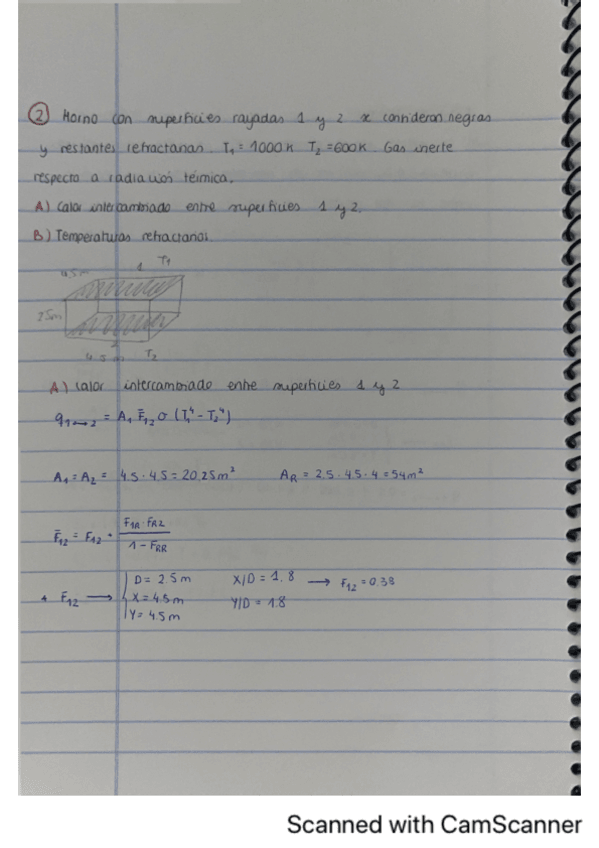 ② Horno con superficies rayadas 1 y 2 se consideran negras
y restantes refractarias. T₁ = 1000K T₂ = 600K. Gas inerte
respecto a radiación térmica.
A) Calor intercambiado entre superficies 1 y 2.
B) Temperaturas refractarias.
4.5m 1 T1
2.5m
2
4.5 m T₂
A) Calor intercambiado entre superficies 1 y 2
q₁→₂ = A₁ F̄₁₂ σ (T₁⁴ - T₂⁴)
A₁ = A₂ = 4.5 · 4.5 = 20.25m² A_R = 2.5 · 4.5 · 4 = 54m²
F̄₁₂ = F₁₂ + F₁R · FR2 / 1 - F_RR
* F₁₂ → { D = 2.5m X/D = 1.8 → F₁₂ = 0.38
X = 4.5m Y/D = 1.8
Y = 4.5m
Scanned with CamScanner